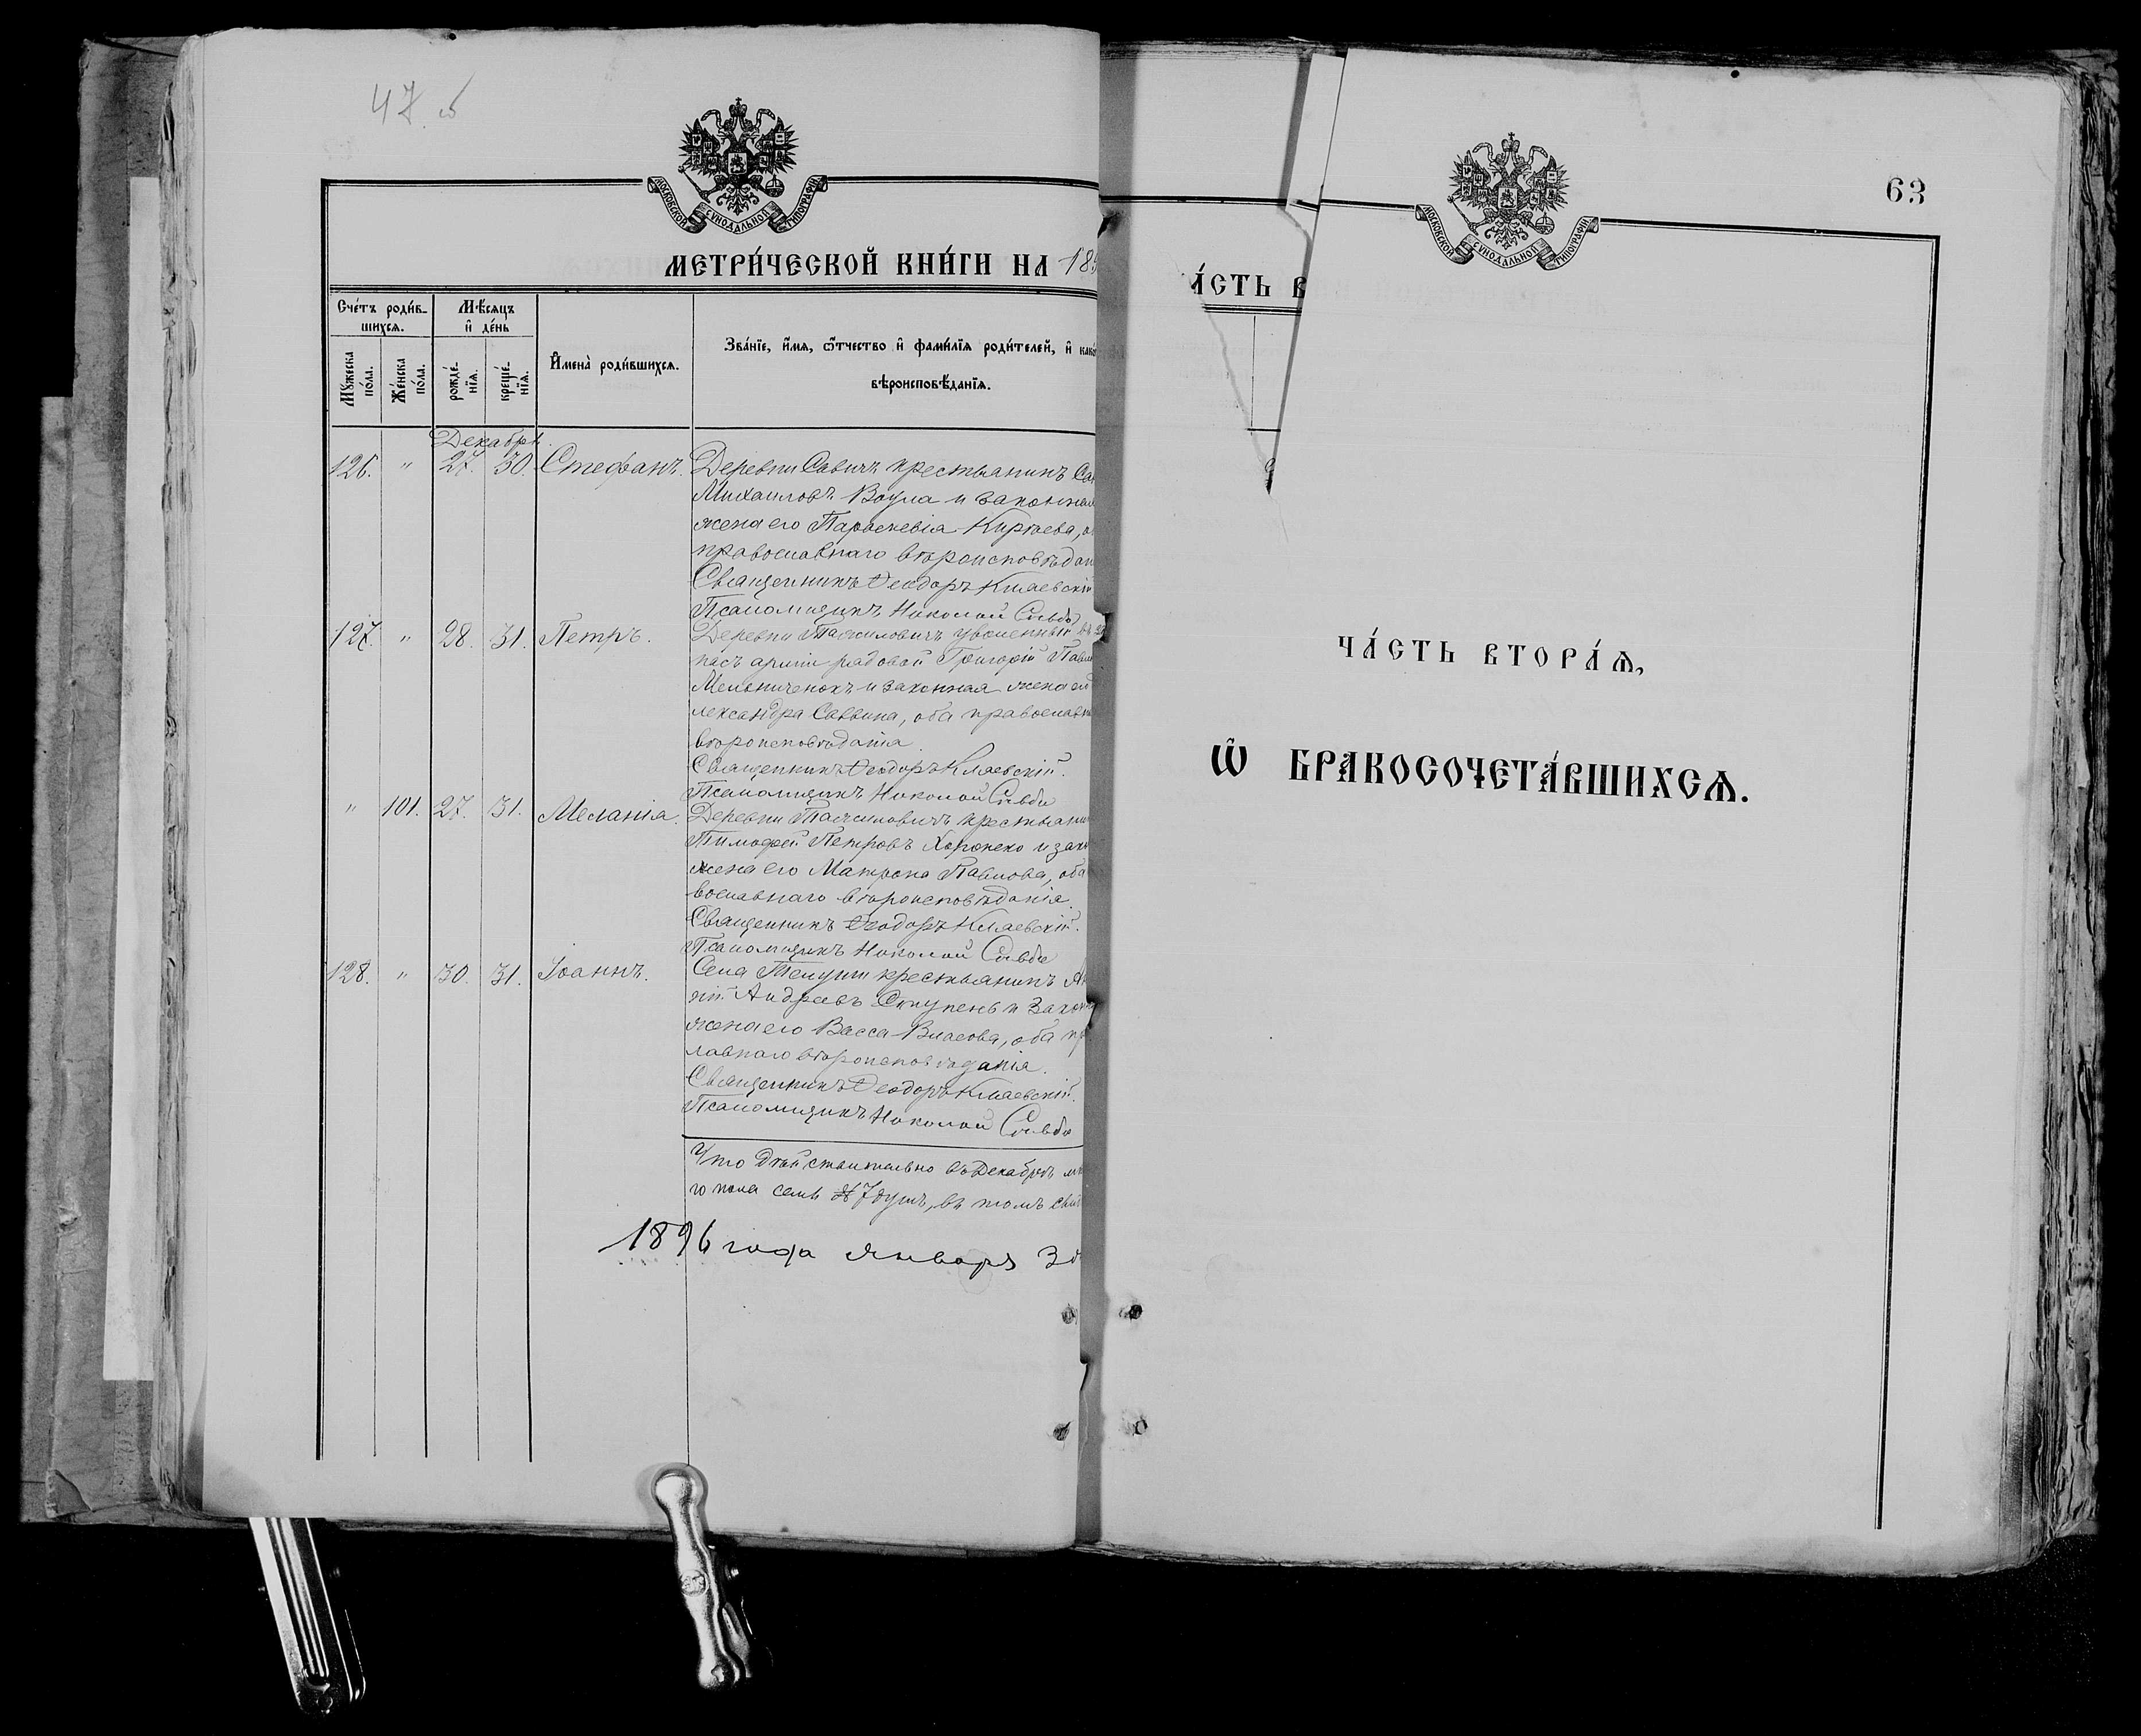 47 об
МОСКОВСКОЙ СѴНОДАЛЬНОЙ ТИПОГРАФІИ
МЕТРИ́ЧЕСКОЙ КНИ́ГИ НА 189
Сче́тъ роди́в-
шихсѧ.
Мѣ́сѧцъ
и҆ де́нь
И҆мена̀ роди́вшихсѧ.
Зва́нїе, и҆́мѧ, ѻ҆́тчество и҆ фами́лїѧ роди́телей, и҆ как
вѣроисповѣ́данїѧ.
Мꙋ́жеска
по́ла.
Же́нска
по́ла.
рожде́-
нїѧ.
креще́-
нїѧ.
Декабрь.
126. " 27. 30. Стефанъ. Деревни Савичъ крестьянинъ Са
Михаиловъ Воула и законная
жена его Параскевія Киріева, о
православнаго вѣроисповѣдан
Священникъ Ѳеодоръ Кмаевскій
Псаломщикъ Николай
127. " 28. 31. Петръ. Деревни уволенный въ за
пасъ арміи рядовой Григорій Павло
Мельниченокъ и законная жена ег
лександра Саввина, оба православн
вѣроисповѣданія.
Священникъ Ѳеодоръ Кмаевскій.
Псаломщикъ Николай
" 101. 27. 31. Меланія. Деревни крестьянин
Тимофей Петровъ Хоронеко и зако
жена его Матрона Павлова, оба
вославнаго вѣроисповѣданія.
Священникъ Ѳеодоръ Кмаевскій.
Псаломщикъ Николай
128. " 30. 31. Іоаннъ. Села Телуши крестьянинъ
ній Андреевъ Ступень и закон
жена его Васса Власова, оба пр
лавнаго вѣроисповѣданія.
Священникъ Ѳеодоръ Кмаевскій.
Псаломщикъ Николай
Что дѣйствительно въ Декабрѣ м
го пола семь 7 душъ, въ томъ сви
1896 года января 3
А́СТЬ В
63
МОСКОВСКОЙ СѴНОДАЛЬНОЙ ТИПОГРАФІИ
ЧА́СТЬ ВТОРА́Ѧ,
Ѡ҆ БРАКОСОЧЕТА́ВШИХСѦ.